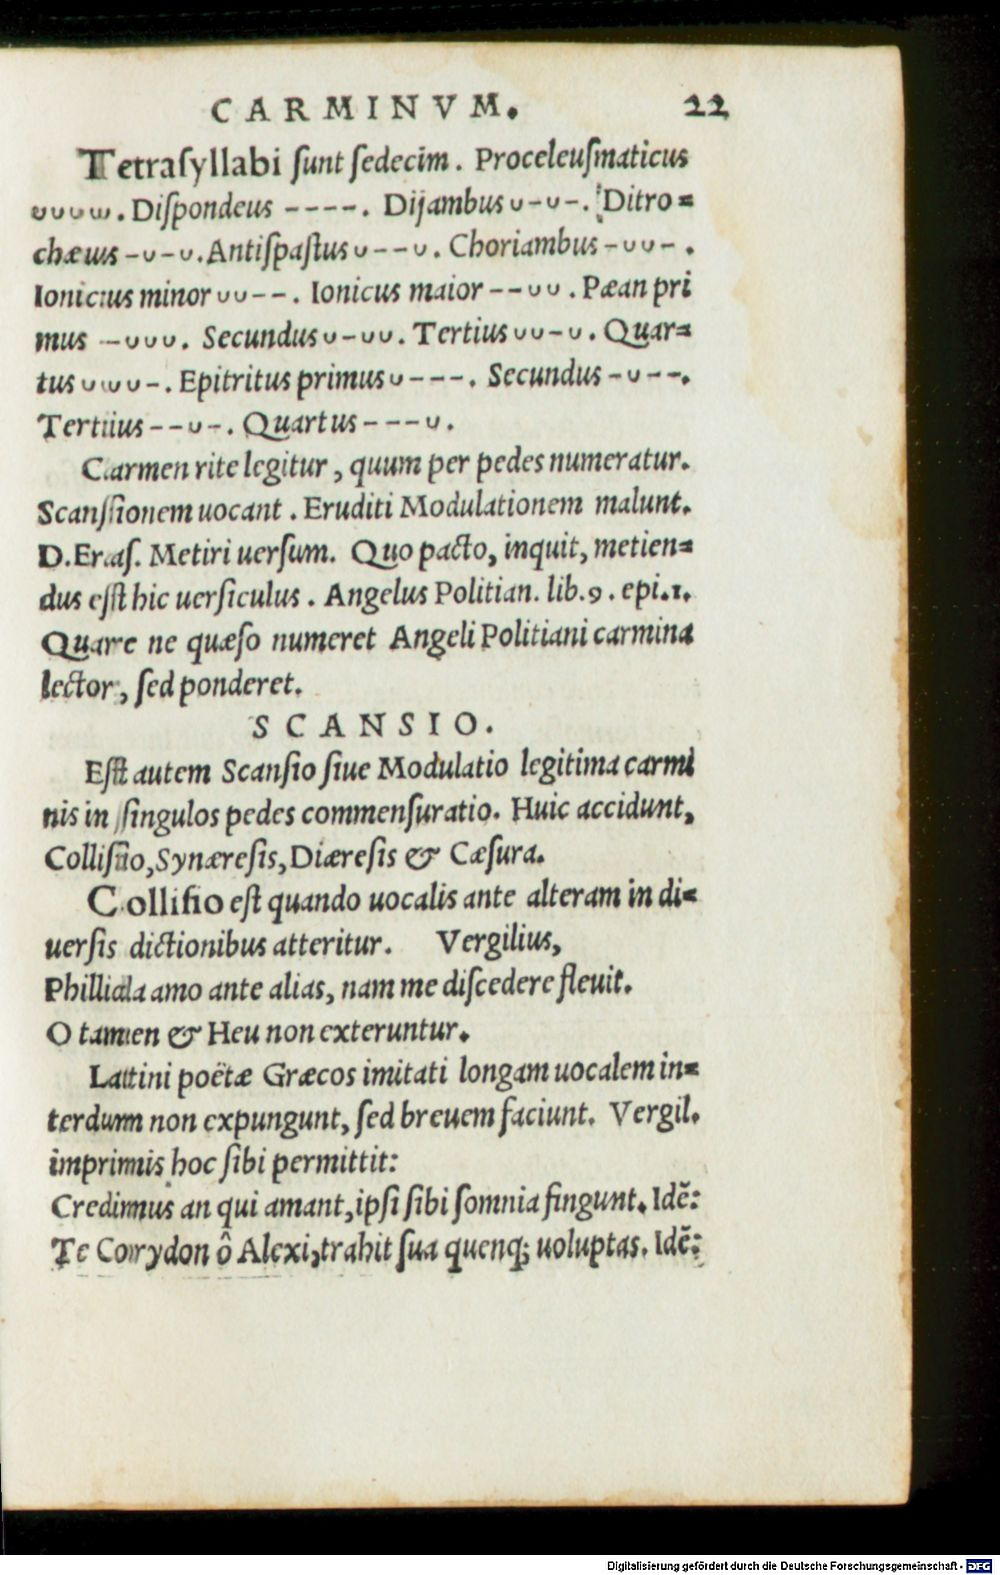 CARMINVM. 22
Tetraſyllabi ſunt ſedecim. Proceleuſmaticus
υυυυ. Diſpondeus ----. Dijambus υ-υ-. Ditro=
chæus -υ-υ. Antiſpaſtus υ--υ. Choriambus -υυ-.
Ionicus minor υυ--. Ionicus maior --υυ. Pæan pri
mus -υυυ. Secundus υ-υυ. Tertius υυ-υ. Quar=
tus υυυ-. Epitritus primus υ---. Secundus -υ--.
Tertius --υ-. Quartus ---υ.
Carmen rite legitur, quum per pedes numeratur.
Scanſionem uocant. Eruditi Modulationem malunt.
D. Eraſ. Metiri uerſum. Quo pacto, inquit, metien=
dus eſt hic uerſiculus. Angelus Politian. lib. 9. epi. 1.
Quare ne quæſo numeret Angeli Politiani carmina
lector, ſed ponderet.
SCANSIO.
Eſt autem Scanſio ſiue Modulatio legitima carmi
nis in ſingulos pedes commenſuratio. Huic accidunt,
Colliſio, Synæreſis, Diæreſis & Cæſura.
Colliſio eſt quando uocalis ante alteram in di=
uerſis dictionibus atteritur. Vergilius,
Phillida amo ante alias, nam me diſcedere fleuit.
O tamen & Heu non exteruntur.
Latini poëtæ Græcos imitati longam uocalem in=
terdum non expungunt, ſed breuem faciunt. Vergil.
imprimis hoc ſibi permittit:
Credimus an qui amant, ipſi ſibi ſomnia fingunt. Idẽ:
Te Corydon ô Alexi, trahit ſua quenq; uoluptas. Idẽ:
Digitalisierung gefördert durch die Deutsche Forschungsgemeinschaft - DFG